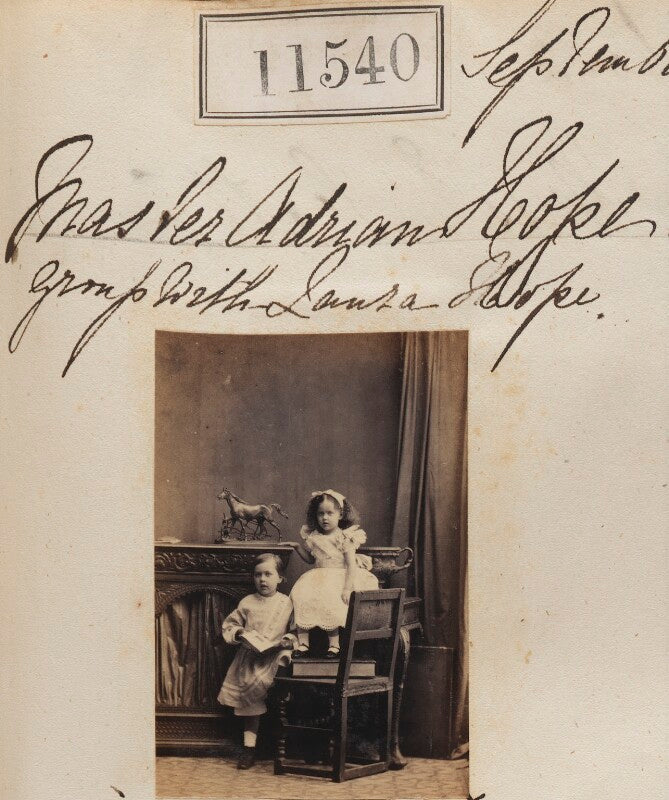 11540
Septemb
Master Adrian Hope
group with Laura Hope.